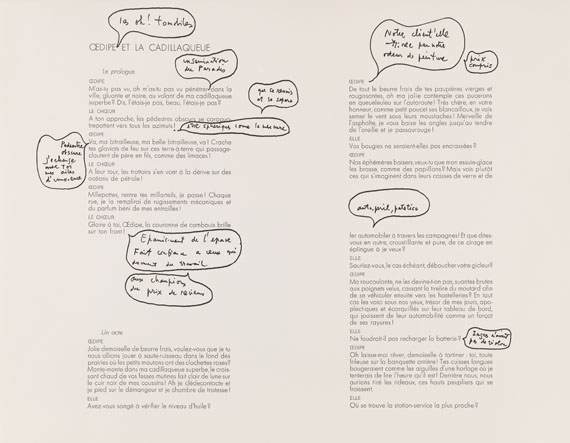 les oh! tondiles
ŒDIPE ET LA CADILLAQUEUE
Un prologue
ŒDIPE
M'as-tu pas vu, oh m'as-tu pas vu pénétrer dans la
ville, gluante et noire, au volant de ma cadillaqueue
superbe? Dis, l'étais-je pas, beau, l'étais-je pas?
LE CHŒUR
A ton approche, les pédestres obscurs se
trepattent vers tous les azimuts!
ŒDIPE
Va, ma bitrailleuse, ma belle bitrailleuse, va! Crache
tes glaviots de feu sur ces terre-à-terre qui passage-
cloutent de père en fils, comme des limaces!
LE CHŒUR
A leur tour, les trottoirs s'en vont à la dérive sur des
océans de pétrole!
ŒDIPE
Millepattes, rentre tes millansils, je passe! Chaque
rue, je la remplirai de rugissements mécaniques et
du parfum béni de mes entrailles!
LE CHŒUR
Gloire à toi, Œdipe, la couronne de cambouis brille
sur ton front!
insémination
du Paradis
que se
et se
une sphérique sous la
Pédestre
obscure
j'échange
avec toi
mes ailes
d'
de l'épave
Fait confiance à ceux qui
du travail
aux champions
du prix de
Un acte
ŒDIPE
Jolie demoiselle de beurre frais, voulez-vous que je tu
nous allions jouer à saute-ruisseau dans le fond des
prairies où les petits moutons ont des clochettes roses?
Monte-monte dans ma cadillaqueue superbe, le crois-
sant chaud de vos fesses mutines fait clair de lune sur
le cuir noir de mes coussins! Ah je clédecontacte et
je pied sur le démangeur et je chambre de tristesse!
ELLE
Avez-vous songé à vérifier le niveau d'huile?
Notre client'elle
par notre
odeur de peinture
prix
compris
ŒDIPE
De tout le beurre frais de tes paupières vierges et
roussissantes, oh ma jolie contemple ces pucerons
en queueleuleu sur l'autoraute! Très chère, en votre
honneur, comme petit poucet ses blancailloux, je vais
semer le vent sous leurs moustaches! Merveille de
l'assphalte, je vous baise les ongles jusqu'au tendre
de l'oreille et je passaurouge!
ELLE
Vos bougies ne seraient-elles pas encrassées?
ŒDIPE
Nos éphémères baisers, veux-tu que mon essuie-glace
les brosse, comme des papillons? Mais vois plutôt
ces qui s'imaginent dans leurs caisses de verre et de
auto, péril, patético
fer automobiler à travers les campagnes! Et que dites-
vous en outre, croustillante et pure, de ce cirage en
épilingue à je veux?
ELLE
Sauriez-vous, le cas échéant, déboucher votre gicleur?
ŒDIPE
Ma roucoulante, ne les devine-t-on pas, suantes brutes
aux poignets velus, cassant la tirelire du moutard afin
de se véhiculer ensuite vers les hostelleries? En tout
cas les voici sous nos yeux, trésor de mes jours, apo-
plectiques et écarquillés sur leur tableau de bord,
qui jouissent de leur automobilité comme un forçat
de ses rayures!
ELLE
Ne faudrait-il pas recharger la batterie?
ŒDIPE
Oh laisse-moi rêver, demoiselle à tartiner: toi, toute
frileuse sur la banquette arrière! Tes cuisses longues
bougeraient comme les aiguilles d'une horloge où je
tenterais de lire l'heure qu'il est! Derrière nous, nous
aurions tiré les rideaux, ces hauts peupliers qui se
froissent.
ELLE
Où se trouve la station-service la plus proche?